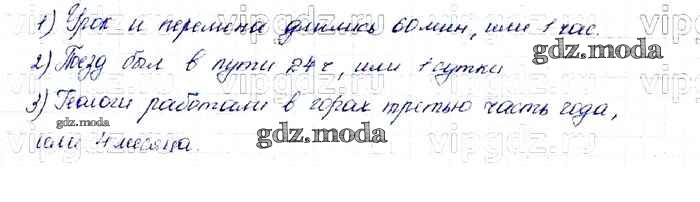 1) Урок и перемена длились 60 мин, или 1 час.
2) Поезд был в пути 24 ч, или 1 сутки
3) Геологи работали в горах третью часть года,
или 4 месяца.
gdz.moda
gdz.moda
gdz.moda
gdz.moda
vipgdz.ru